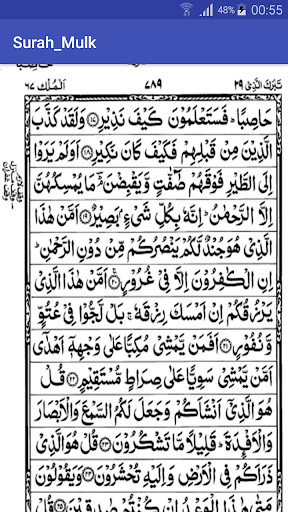 48% 00:55
Surah_Mulk
تَبٰرَكَ الَّذِىْ ٢٩ ٧٨٩ اَلْمُلْك ٦٧
حَاصِبًا ؕ فَسَتَعْلَمُوْنَ كَيْفَ نَذِيْرِ ﴿۱۷﴾ وَلَقَدْ كَذَّبَ
الَّذِيْنَ مِنْ قَبْلِهِمْ فَكَيْفَ كَانَ نَكِيْرِ ﴿۱۸﴾ اَوَلَمْ يَرَوْا
اِلَى الطَّيْرِ فَوْقَهُمْ صٰٓفّٰتٍ وَّيَقْبِضْنَ ؔۘ مَا يُمْسِكُهُنَّ
اِلَّا الرَّحْمٰنُ ؕ اِنَّهٗ بِكُلِّ شَىْءٍۭ بَصِيْرٌ ﴿۱۹﴾ اَمَّنْ هٰذَا
الَّذِىْ هُوَ جُنْدٌ لَّكُمْ يَنْصُرُكُمْ مِّنْ دُوْنِ الرَّحْمٰنِ ؕ
اِنِ الْكٰفِرُوْنَ اِلَّا فِىْ غُرُوْرٍ ﴿۲۰﴾ اَمَّنْ هٰذَا الَّذِىْ
يَرْزُقُكُمْ اِنْ اَمْسَكَ رِزْقَهٗ ۚ بَلْ لَّجُّوْا فِىْ عُتُوٍّ
وَّنُفُوْرٍ ﴿۲۱﴾ اَفَمَنْ يَّمْشِىْ مُكِبًّا عَلٰى وَجْهِهٖۤ اَهْدٰٓى
اَمَّنْ يَّمْشِىْ سَوِيًّا عَلٰى صِرَاطٍ مُّسْتَقِيْمٍ ﴿۲۲﴾ قُلْ
هُوَ الَّذِىْۤ اَنْشَاَكُمْ وَجَعَلَ لَكُمُ السَّمْعَ وَالْاَبْصَارَ
وَالْاَفْـِٕدَةَ ؕ قَلِيْلًا مَّا تَشْكُرُوْنَ ﴿۲۳﴾ قُلْ هُوَ الَّذِىْ
ذَرَاَكُمْ فِى الْاَرْضِ وَاِلَيْهِ تُحْشَرُوْنَ ﴿۲۴﴾ وَيَقُوْلُوْنَ
مَتٰى هٰذَا الْوَعْدُ اِنْ كُنْتُمْ صٰدِقِيْنَ ﴿۲۵﴾